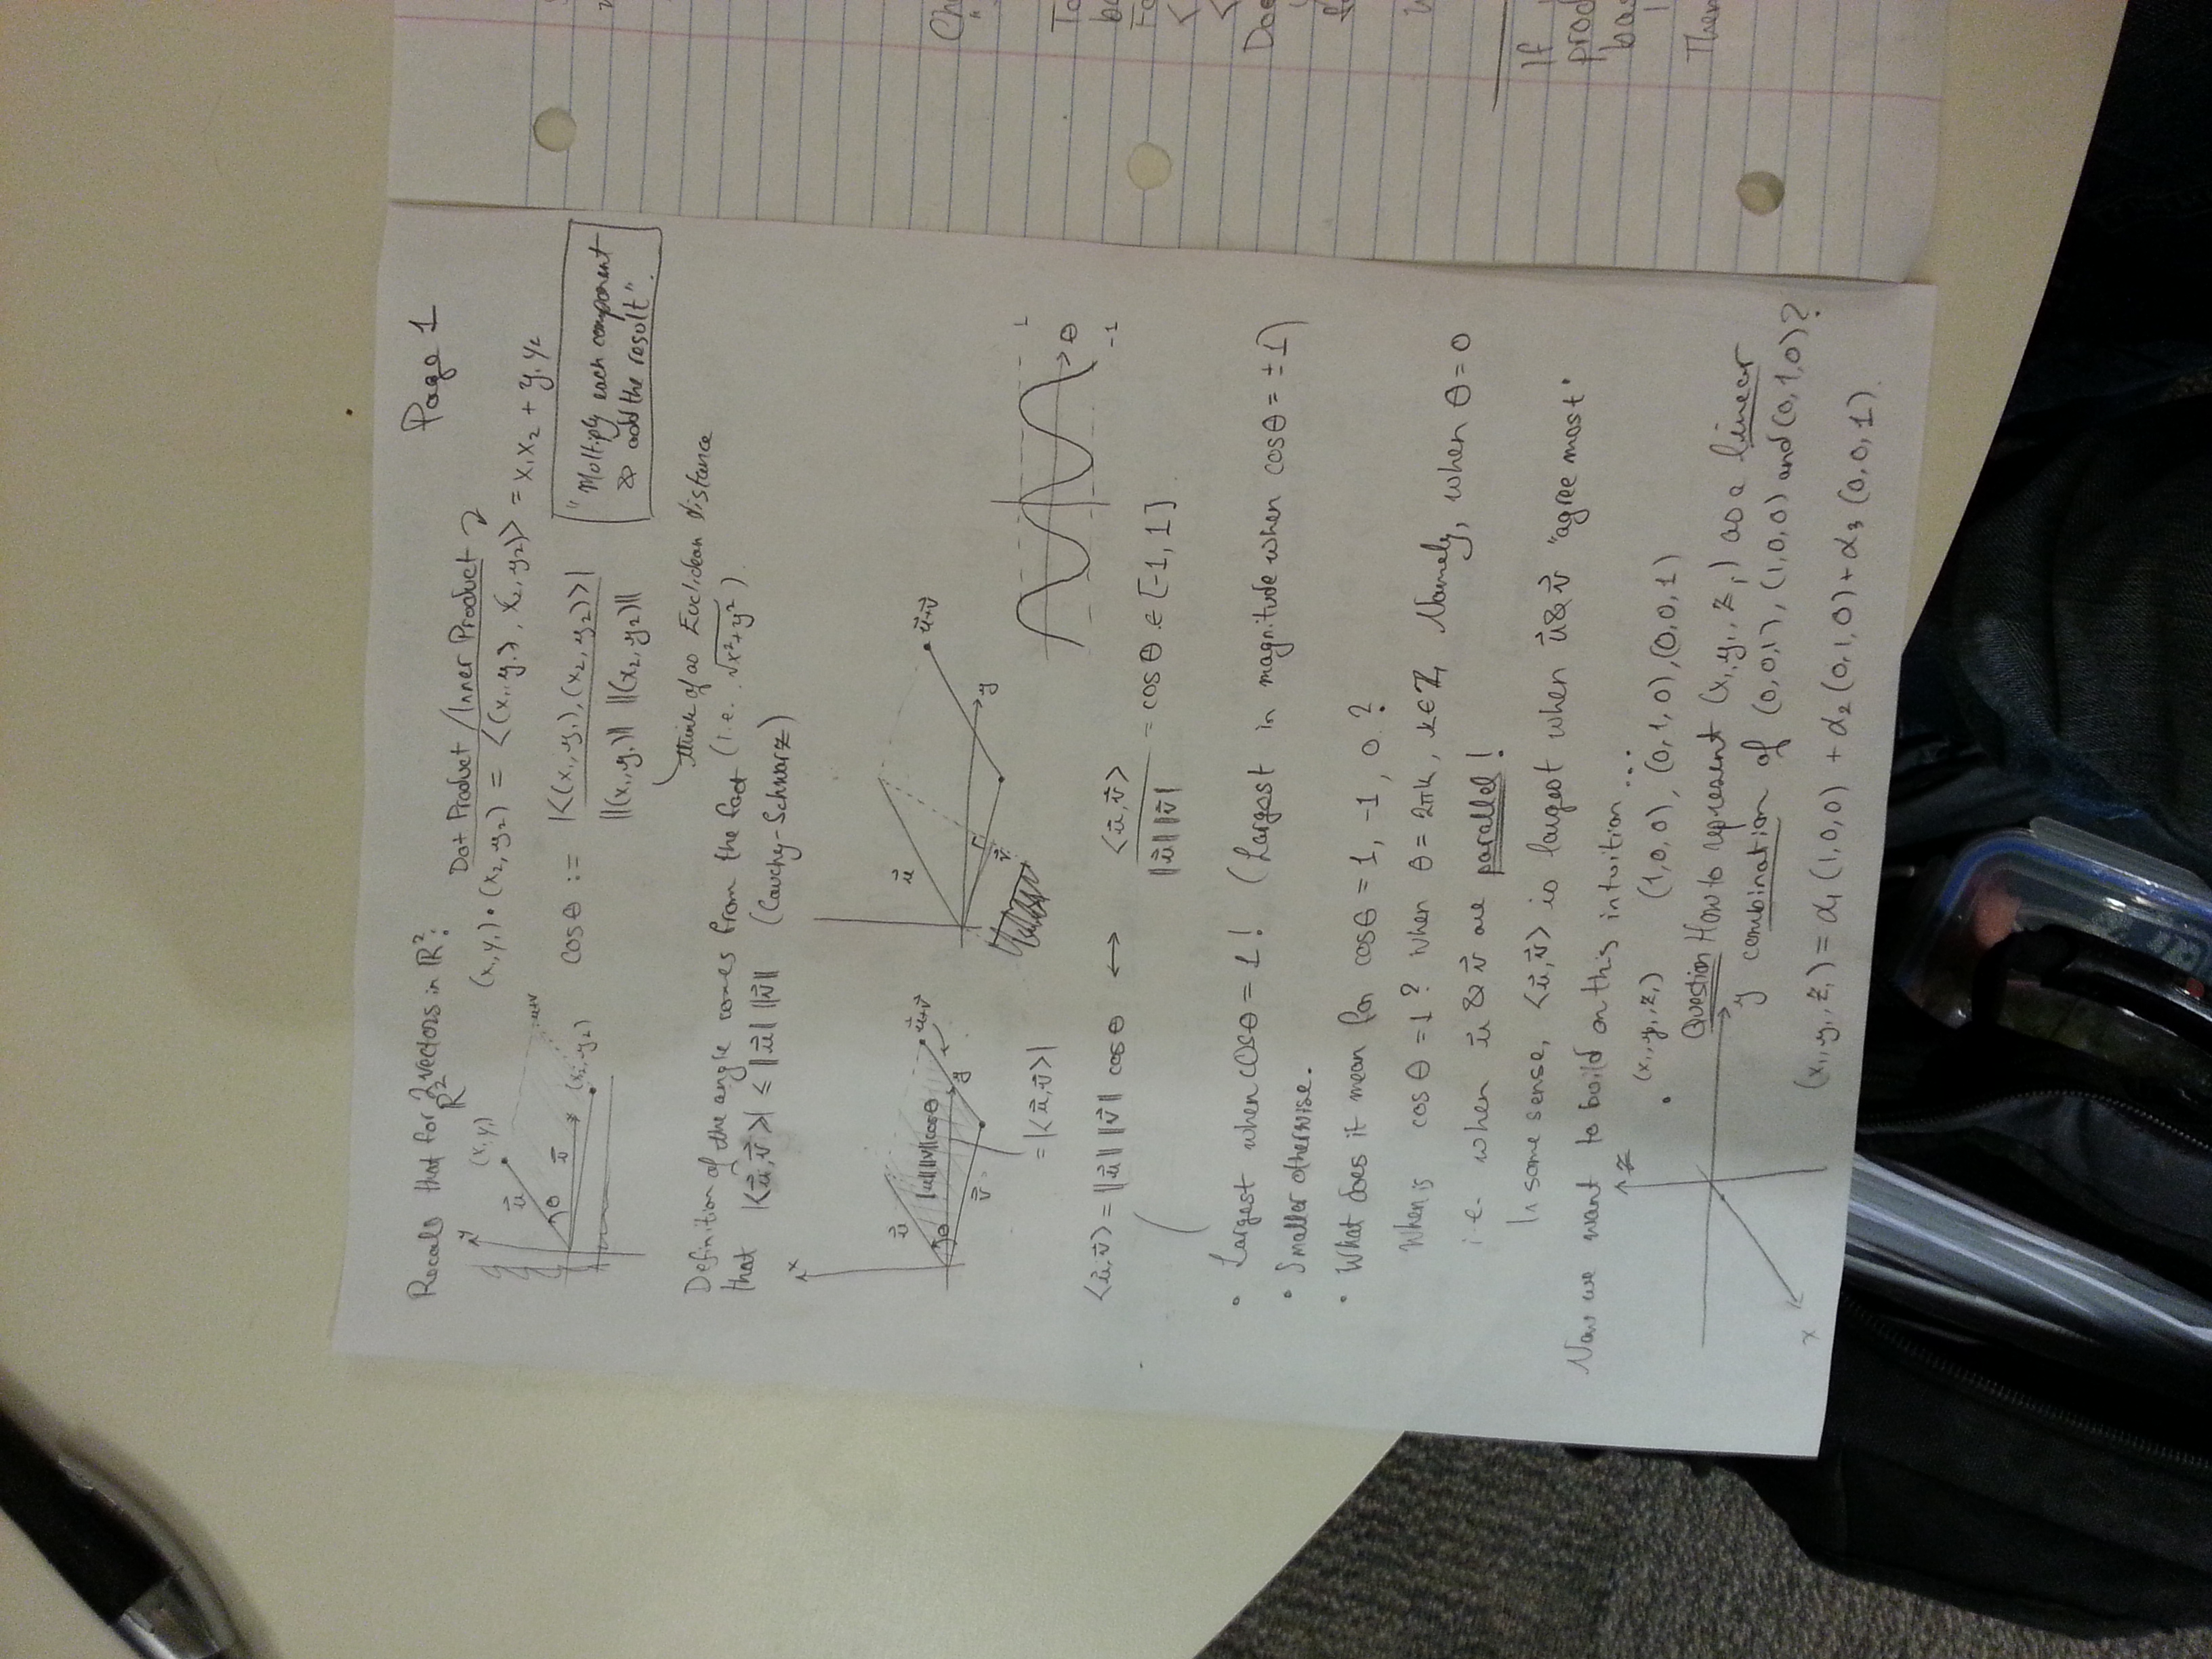 Page 1
Recall that for 2 vectors in ℝ²:
ℝ²
Dot Product / Inner Product
(x₁,y₁)•(x₂,y₂) = <(x₁,y₁), (x₂,y₂)> = x₁x₂ + y₁y₂
"Multiply each component
& add the result".
y
(x₁,y₁)
u⃗
θ
v⃗
u+v
(x₂,y₂)
cosθ := |<(x₁,y₁),(x₂,y₂)>|
||(x₁,y₁)|| ||(x₂,y₂)||
think of as Euclidean distance
(i.e. √x²+y²).
Definition of the angle comes from the fact
that |<u⃗,v⃗>| ≤ ||u⃗|| ||v⃗|| (Cauchy-Schwarz)
x
u⃗
θ
||u|| ||v|| cosθ
v⃗
y
u⃗+v⃗
= |<u⃗,v⃗>|
u⃗
v⃗
y
u⃗+v⃗
1
θ
-1
<u⃗,v⃗> = ||u⃗|| ||v⃗|| cosθ ↔ <u⃗,v⃗>
||u⃗|| ||v⃗|| = cosθ ∈ [-1,1]
• Largest when cosθ = 1! (Largest in magnitude when cosθ = ±1)
• Smaller otherwise.
• What does it mean for cosθ = 1, -1, 0?
When is cosθ = 1? when θ = 2πk, k∈ℤ, Namely, when θ = 0
i.e. when u⃗ & v⃗ are parallel!
In some sense, <u⃗,v⃗> is largest when u⃗ & v⃗ "agree most"
Now we want to build on this intuition...
z
• (x₁,y₁,z₁) (1,0,0), (0,1,0), (0,0,1)
Question How to represent (x₁,y₁,z₁) as a linear
y
combination of (0,0,1), (1,0,0) and (0,1,0)?
x
(x₁,y₁,z₁) = α₁(1,0,0) + α₂(0,1,0) + α₃(0,0,1).
To
<
<
If
prod
bas
Then